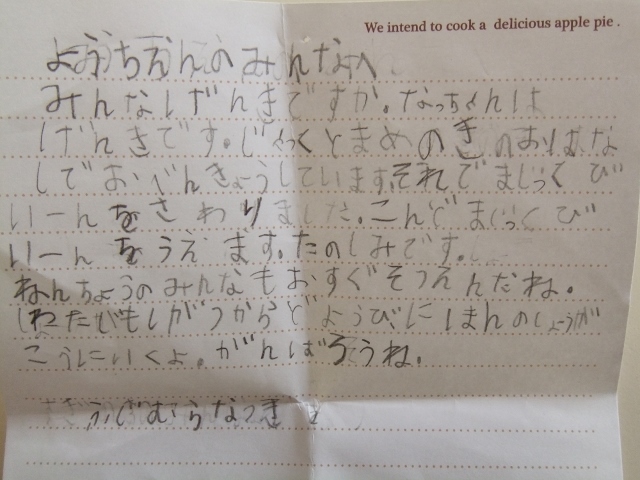 We intend to cook a delicious apple pie.
ようちえんのみんなへ
みんなげんきですか。なっちゃんは
げんきです。じゃっくとまめのきのおはな
しでおべんきょうしています。それでまじっくび
いーんをさわりました。こんどまじっくび
いーんをうえます。たのしみです。
ねんちょうのみんなもおすぐそつえんだね。
わたしもしがつからどようびにほんのしょうがっ
こうにいくよ。がんばろうね。
ふじむらなつき